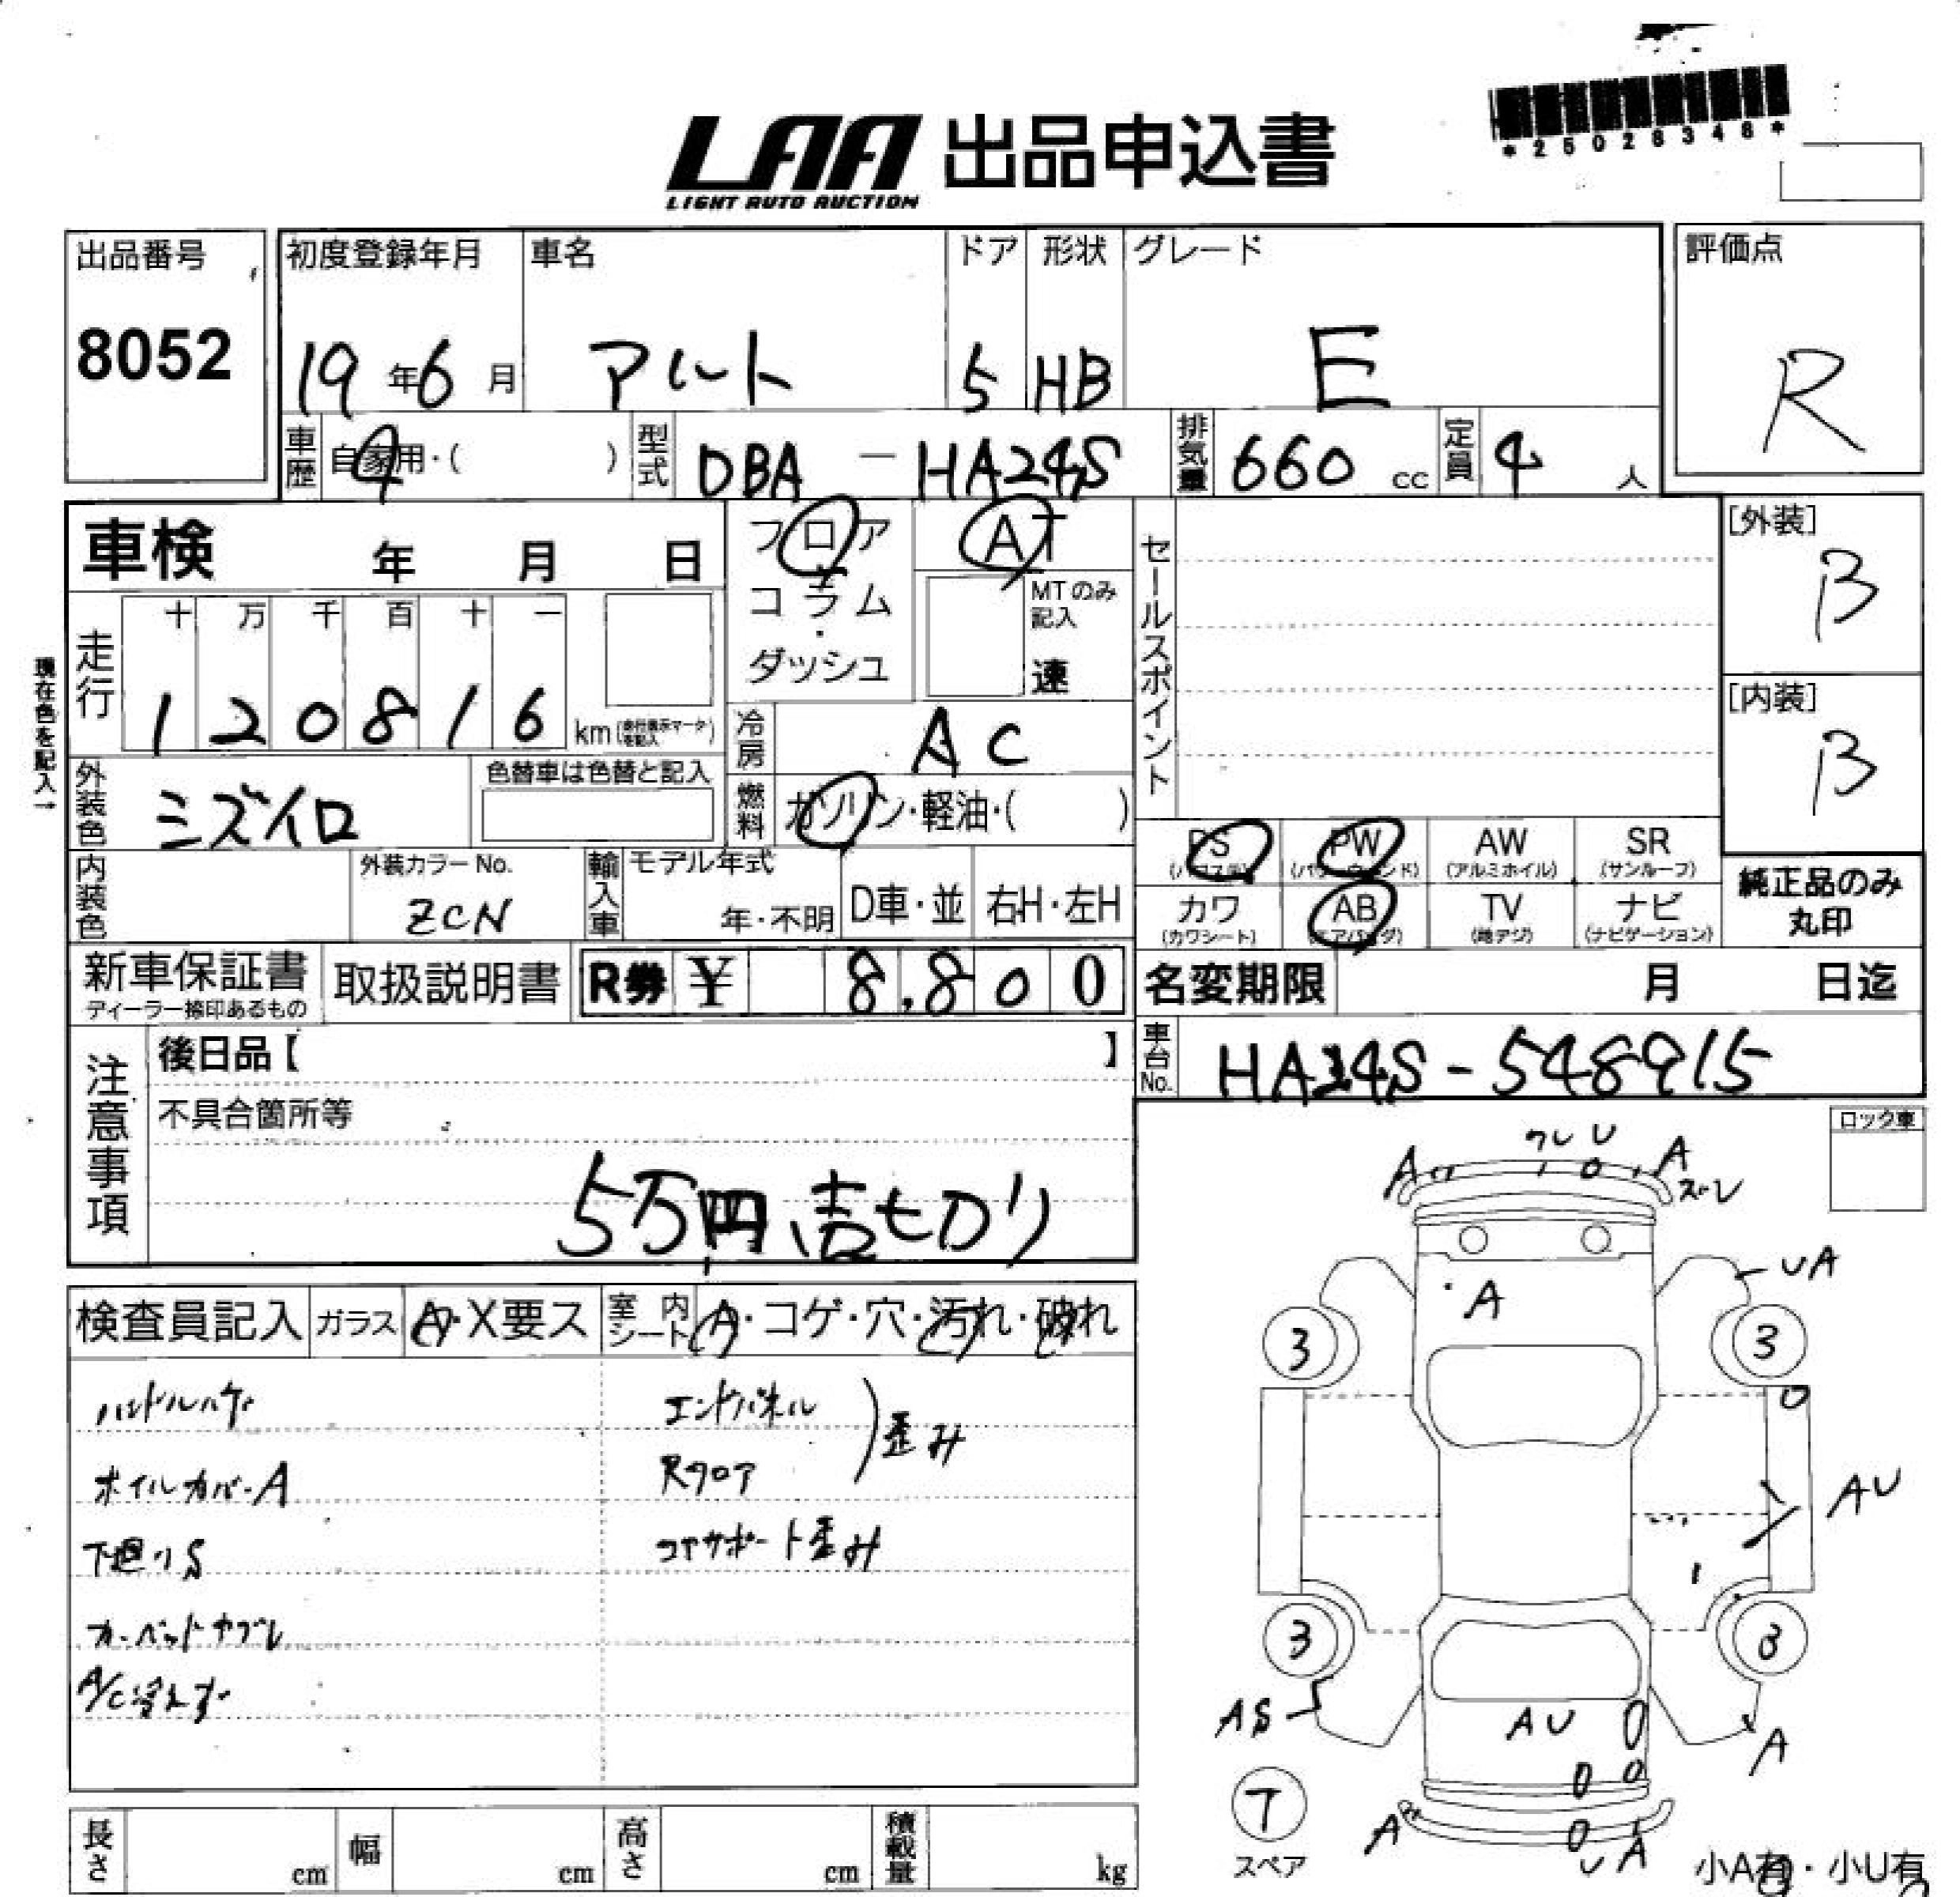 *25028348*
LAA 出品申込書
LIGHT AUTO AUCTION
出品番号
8052
初度登録年月
19年6月
車名
アルト
ドア
5
形状
HB
グレード
E
評価点
R
車歴 自家用・( )
型式 DBA - HA24S
排気量 660 cc
定員 4 人
車検 年 月 日
フロア
コラム
・
ダッシュ
AT
MTのみ記入
速
セールスポイント
[外装]
B
[内装]
B
現在色を記入→
走行
十 万 千 百 十 一
1 2 0 8 1 6 km
冷房 AC
外装色 ミズイロ
色替車は色替と記入
燃料 ガソリン・軽油・( )
PS PW AW SR
(パワステ) (パワーウィンド) (アルミホイル) (サンルーフ)
カワ AB TV ナビ
(カワシート) (エアバッグ) (地デジ) (ナビゲーション)
純正品のみ
丸印
内装色
外装カラーNo.
ZCN
輸入車
モデル年式
年・不明
D車・並
右H・左H
新車保証書
ディーラー捺印あるもの
取扱説明書
R券 ¥ 8,800
名変期限 月 日迄
車台No. HA24S-548915
注意事項
後日品【 】
不具合箇所等
5万円売切り
ロック車
検査員記入
ガラス A・X要ス
室内シート A・コゲ・穴・汚れ・破れ
ハンドルハゲ
ホイルカバーA
下廻りS
カーペットヤブレ
A/C冷えず
エンドパネル
Rフロア
歪み
コアサポート歪み
A
クレ U
A
ズレ
UA
A
3
3
AU
3
3
AS
AU
A
T
スペア
A
U A
小A有・小U有
長さ cm
幅 cm
高さ cm
積載量 kg